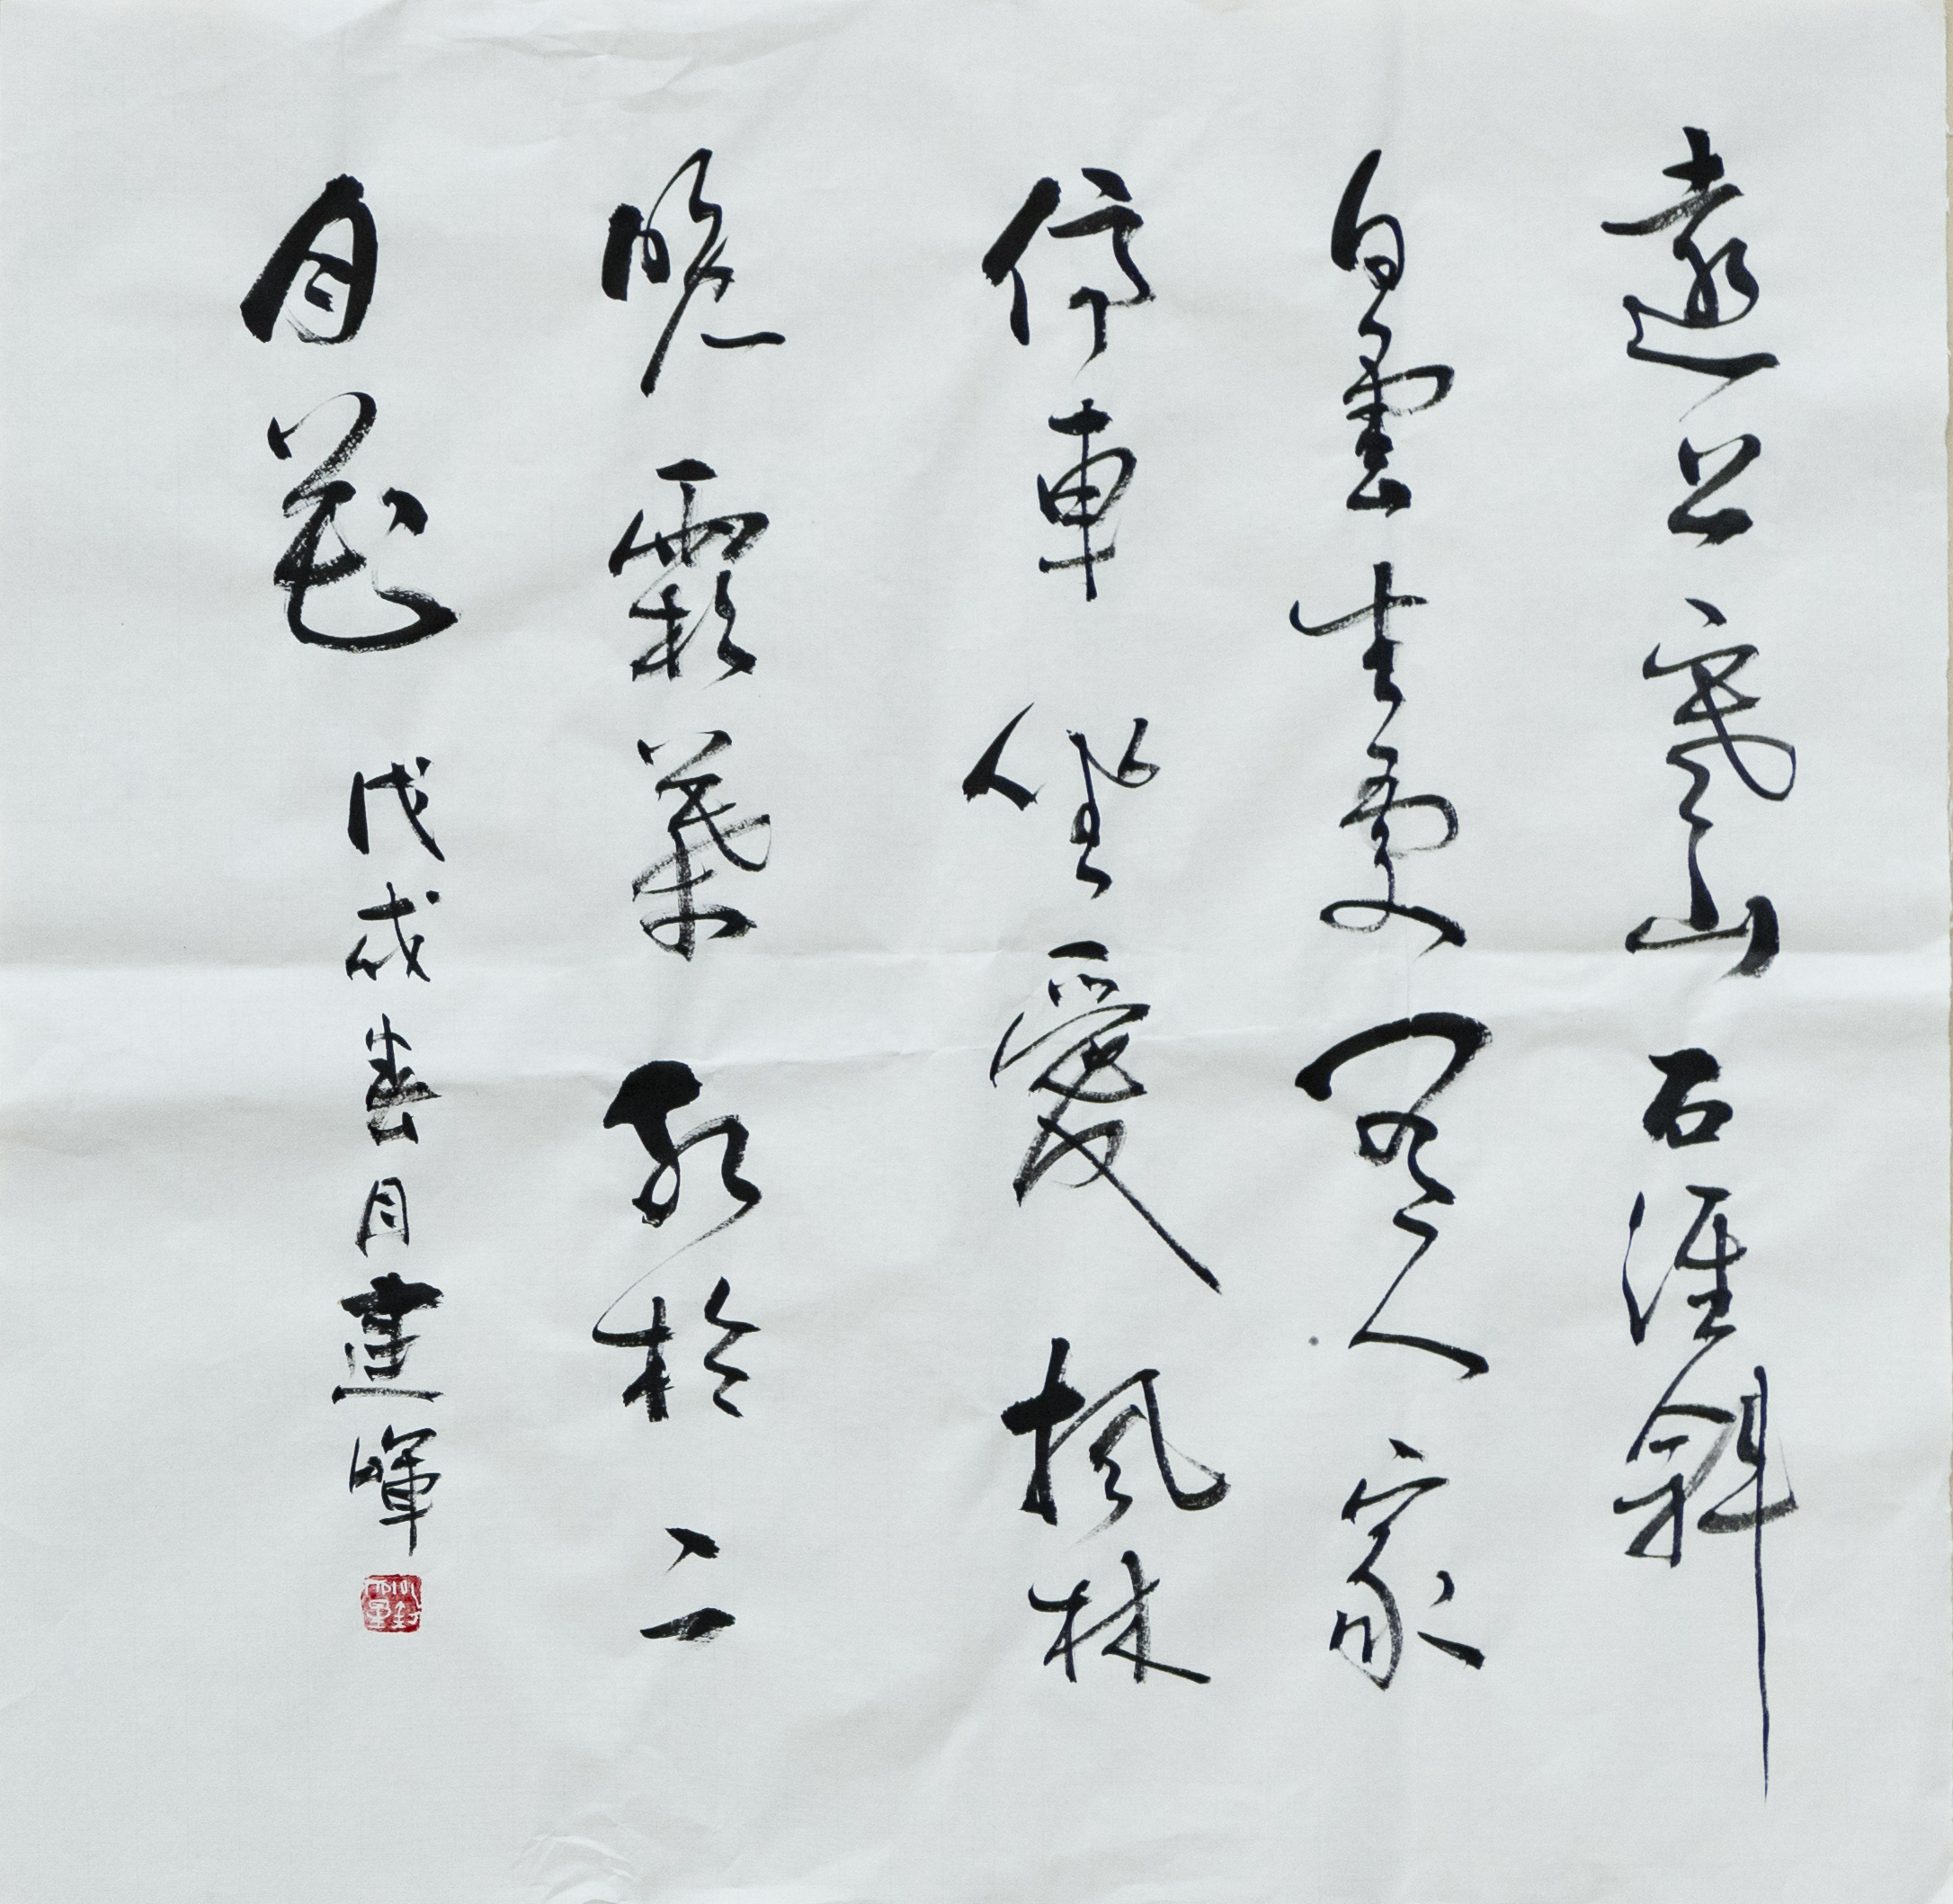 遠上寒山石徑斜
白雲生處有人家
停車坐愛楓林
晚霜葉紅於二
月花
戊戌春月建暉